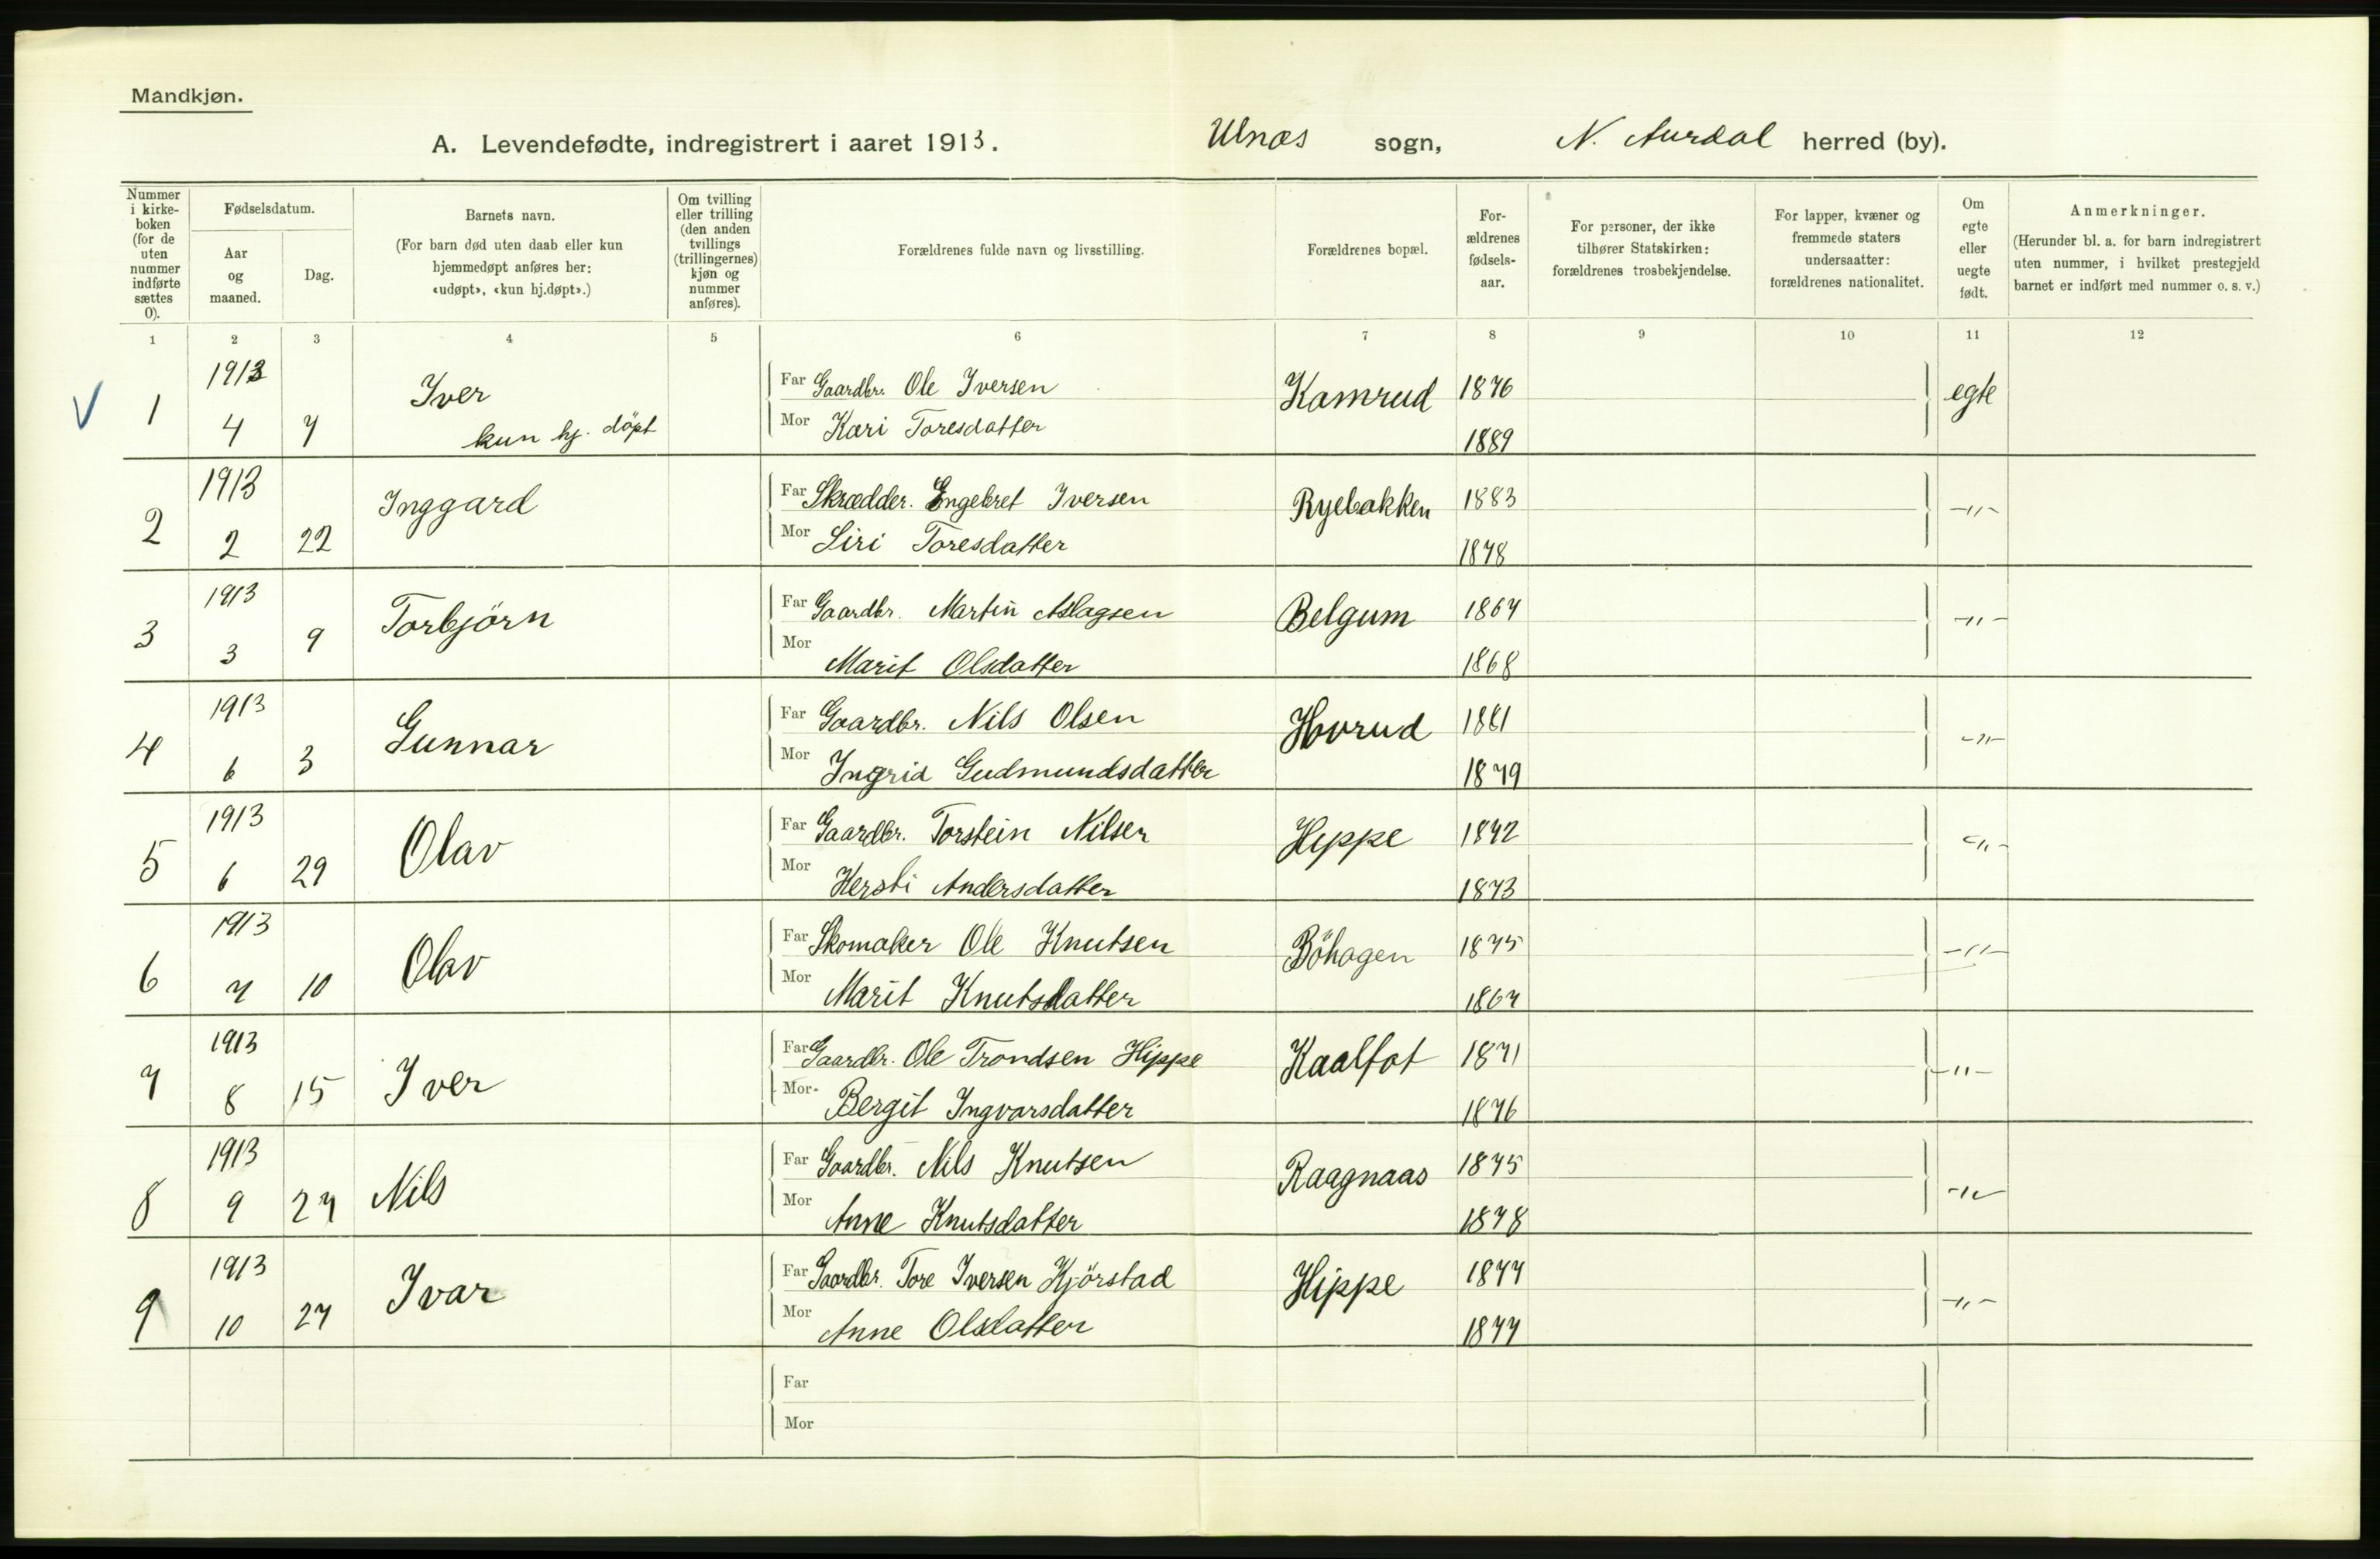 Mandkjøn.
A. Levendefødte, indregistrert i aaret 1913. Ulnæs sogn, N. Aurdal herred (by).
Nummer i kirke-boken (for de uten nummer indførte sættes 0).
Fødselsdatum.
Aar og maaned.
Dag.
Barnets navn.
(For barn død uten daab eller kun hjemmedøpt anføres her: «udøpt», «kun hj.døpt».)
Om tvilling eller trilling (den anden tvillings (trillingernes) kjøn og nummer anføres).
Forældrenes fulde navn og livsstilling.
Forældrenes bopæl.
For-ældrenes fødsels-aar.
For personer, der ikke tilhører Statskirken: forældrenes trosbekjendelse.
For lapper, kvæner og fremmede staters undersaatter: forældrenes nationalitet.
Om egte eller uegte født.
Anmerkninger.
(Herunder bl. a. for barn indregistrert uten nummer, i hvilket prestegjeld barnet er indført med nummer o. s. v.)
1 2 3 4 5 6 7 8 9 10 11 12
V 1 1913 4 7 Iver kun hj. döpt
Far Gaardbr. Ole Iversen Kamrud 1876 egte
Mor Kari Toresdatter 1889
2 1913 2 22 Inggard
Far Skrædder. Engebret Iversen Ryebakken 1883 -"-
Mor Siri Toresdatter 1878
3 1913 3 9 Torbjörn
Far Gaardbr. Martin Aslagsen Belgum 1867 -"-
Mor Marit Olsdatter 1868
4 1913 6 3 Gunnar
Far Gaardbr. Nils Olsen Hovrud 1881 -"-
Mor Ingrid Gudmundsdatter 1879
5 1913 6 29 Olav
Far Gaardbr. Torstein Nilsen Hippe 1872 -"-
Mor Hersti Andersdatter 1873
6 1913 7 10 Olav
Far Skomaker Ole Knutsen Böhagen 1875 -"-
Mor Marit Knutsdatter 1867
7 1913 8 15 Iver
Far Gaardbr. Ole Trondsen Hippe Kaalfot 1871 -"-
Mor Bergit Ingvarsdatter 1876
8 1913 9 27 Nils
Far Gaardbr. Nils Knutsen Raagnaas 1875 -"-
Mor Anne Knutsdatter 1878
9 1913 10 27 Ivar
Far Gaardbr. Tore Iversen Kjörstad Hippe 1877 -"-
Mor Anne Olsdatter 1877
Far
Mor